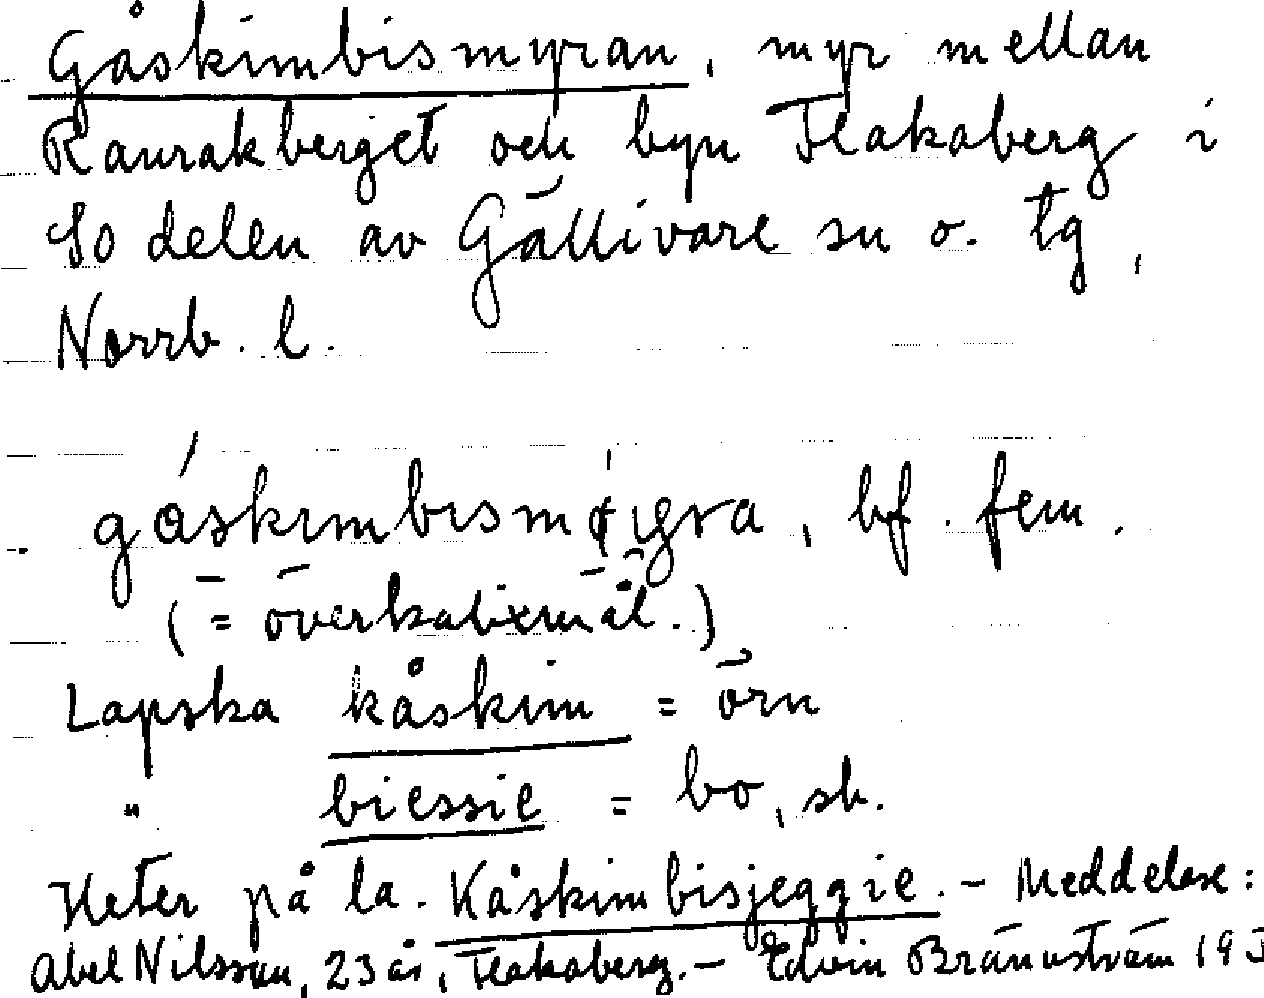 Gåskimbismyran, myr mellan
Raurakberget och byn Flakaberg i
So delen av Gällivare sn o. tg,
Norrb. l.
gåskimbism bf. fem.
(= överkalixmål.)
Lapska kåskim = örn
" biessie = bo, sb.
Heter på la. Kåskimbisjeggie. - Meddelare:
Abel Nilsson, 23 år, Flakaberg. - Edvin Brännström 19